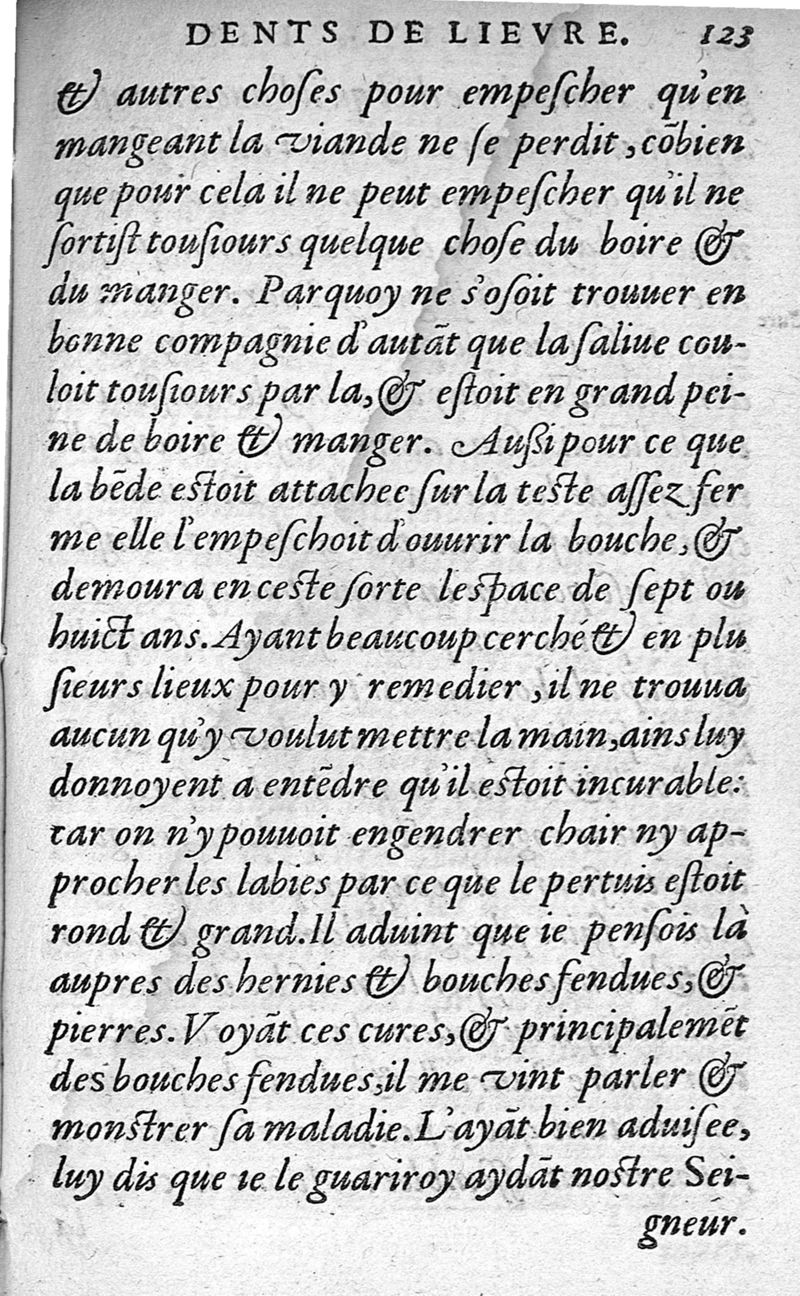 DENTS DE LIEVRE. 123
& autres choſes pour empeſcher qu'en
mangeant la viande ne ſe perdit, cõbien
que pour cela il ne peut empeſcher qu'il ne
ſortiſt touſiours quelque choſe du boire &
du manger. Parquoy ne s'oſoit trouuer en
bonne compagnie d'autãt que la ſaliue cou-
loit touſiours par la, & eſtoit en grand pei-
ne de boire & manger. Außi pour ce que
la bẽde eſtoit attachee ſur la teſte aſſez fer
me elle l'empeſchoit d'ouurir la bouche, &
demoura en ceſte ſorte leſpace de ſept ou
huict ans. Ayant beaucoup cerché & en plu
ſieurs lieux pour y remedier, il ne trouua
aucun qu'y voulut mettre la main, ains luy
donnoyent a entẽdre qu'il eſtoit incurable:
car on n'y pouuoit engendrer chair ny ap-
procher les labies par ce que le pertuis eſtoit
rond & grand. Il aduint que ie penſois là
aupres des hernies & bouches fendues, &
pierres. Voyãt ces cures, & principalemẽt
des bouches fendues, il me vint parler &
monſtrer ſa maladie. L'ayãt bien aduiſee,
luy dis que ie le guariroy aydãt noſtre Sei-
gneur.